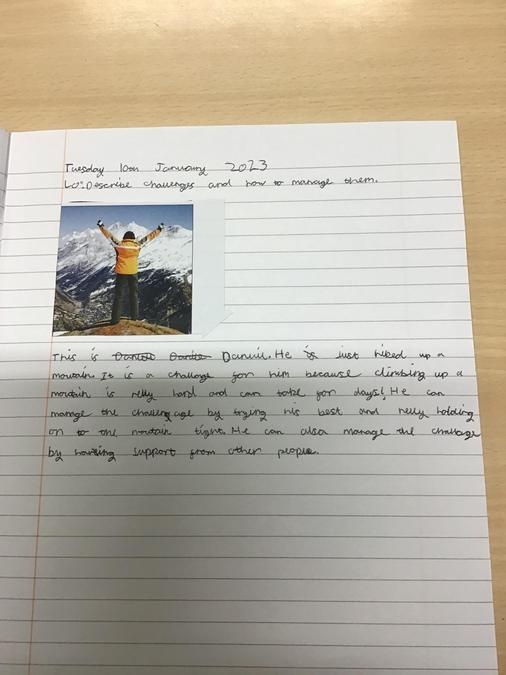 Tuesday 10th January 2023
LO: Describe challenges and how to manage them.
This is Daniil. He is just hiked up a
mountain. It is a challenge for him because climbing up a
moutain is relly hard and can take for days! He can
manage the challeng age by trying his best and relly holding
on to the moutain tight. He can also manage the challenge
by having support from other people.